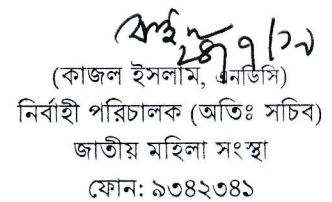 (কাজল ইসলাম, এনডিসি)
নির্বাহী পরিচালক (অতিঃ সচিব)
জাতীয় মহিলা সংস্থা
ফোন: ৯৩৪২৩৪১